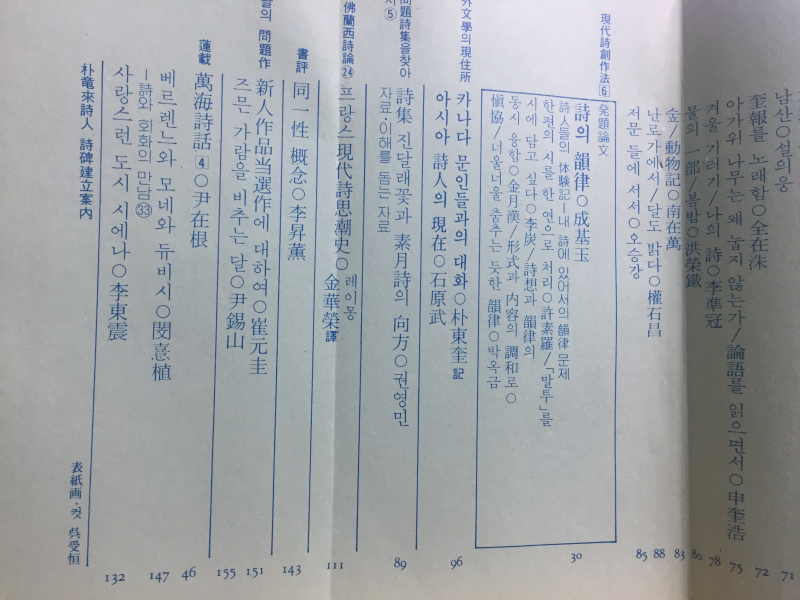 남산○설의웅 71
奎報를 노래함○全在洙 72
아가위 나무는 왜 눕지 않는가/論語를 읽으면서○申奎浩 75
겨울 기러기/나의 詩○李準冠 78
물의 一部/봄밤○洪榮鐵 80
술/動物記○南在萬 83
난로가에서/달도 밝다○權石昌 88
저문 들에 서서○오승강 85
現代詩創作法⑥
発題論文
詩의 韻律○成基玉 30
詩人들의 体験記―내 詩에 있어서의 韻律 문제
한편의 시를 한 연으로 처리○許素羅/「말투」를
시에 담고 싶다○李炭/詩想과 韻律의
동시 융합○金月漢/形式과 内容의 調和로○
愼協/너울너울 춤추는 듯한 韻律○박옥금
外文學의 現住所
카나다 문인들과의 대화○朴東奎 記 96
아시아 詩人의 現在○石原武
問題詩集을찾아
서⑤
詩集 진달래꽃과 素月詩의 向方○권영민 89
자료·이해를 돕는 자료
佛蘭西詩論㉔
프랑스 現代詩思潮史○레이몽
金華榮譯 111
書評
同一性 概念○李昇薰 143
들의 問題作
新人作品当選作에 대하여○崔元圭 151
즈믄 가람을 비추는 달○尹錫山 155
蓮載
萬海詩話④○尹在根 46
베르렌느와 모네와 듀비시○閔憙植 147
―詩와 회화의 만남㉝
사랑스런 도시 시에나○李東震 132
朴竜來詩人 詩碑建立案内
表紙画·컷 呉受恒